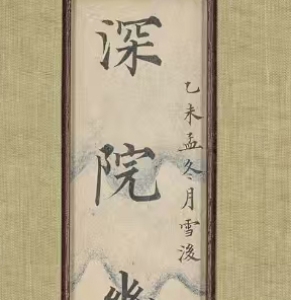 乙未孟冬月雪後
深院